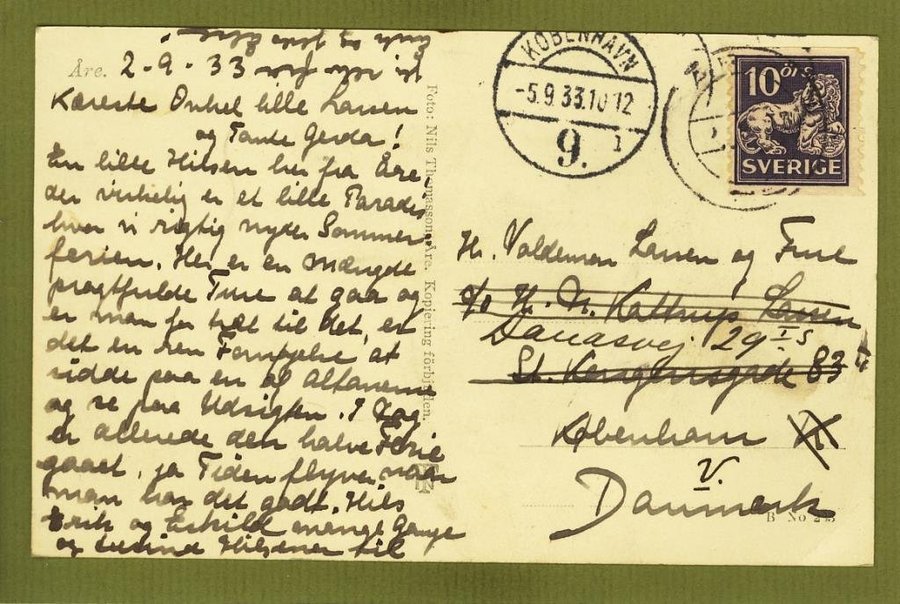 Åre. 2-9-33
Kæreste Onkel lille Larsen
og Tante Gerda!
En lille Hilsen her fra Åre,
der virkelig er et lille Paradis
hvor vi rigtig nyder Sommer
ferien. Her er en mængde
pragtfulde Ture at gaa og
er man for træt til det, er
det en ren Fornøjelse at
sidde paa en af altanerne
og se paa Udsigten. I Dag
er allerede den halve Ferie
gaaet, ja Tiden flyver, naar
man har det godt. Hils
Erik og Eskild mange Gange
og tusind Hilsener til
Foto: Nils Thomasson, Åre. Kopiering förbjuden.
KØBENHAVN
-5.9.33.10-12
9. 1
10 ÖRE
SVERIGE
Hr. Valdemar Larsen og Frue
c/o H. N. Kattrup Larsen
Danasvej 29 I S
St. Kongensgade 83
København
V.
Danmark
B No 243